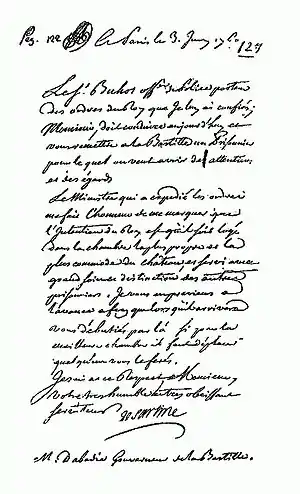 Pag. 122 A Paris le 3. Juin 1760
127
Le Sr. Buhot offer. de Police porteur
des ordres du Roy que Je luy ai confiés,
Monsieur, doit conduire aujourd'huy et
vous remettre a la Bastille un Prisonnier
pour le quel on veut avoir des attentions
et des égards
Le Ministre qui a expedié les ordres
me fait l'honneur de me marquer que
l'Intention du Roy est qu'il soit logé
dans la chambre la plus propre et la
plus commode du château, et servi avec
grand soin et distinction des autres
prisonniers. Je vous en previens a
l'avance afin que lors qu'il arrivera
vous débutiés par là si pour la
meilleure chambre il faut déplacer
quelqu'un vous le ferés.
Je suis avec respect Monsieur,
Votre tres humble et tres obeissant
serviteur
De Sartine
M. Dabadie Gouverneur de la Bastille.